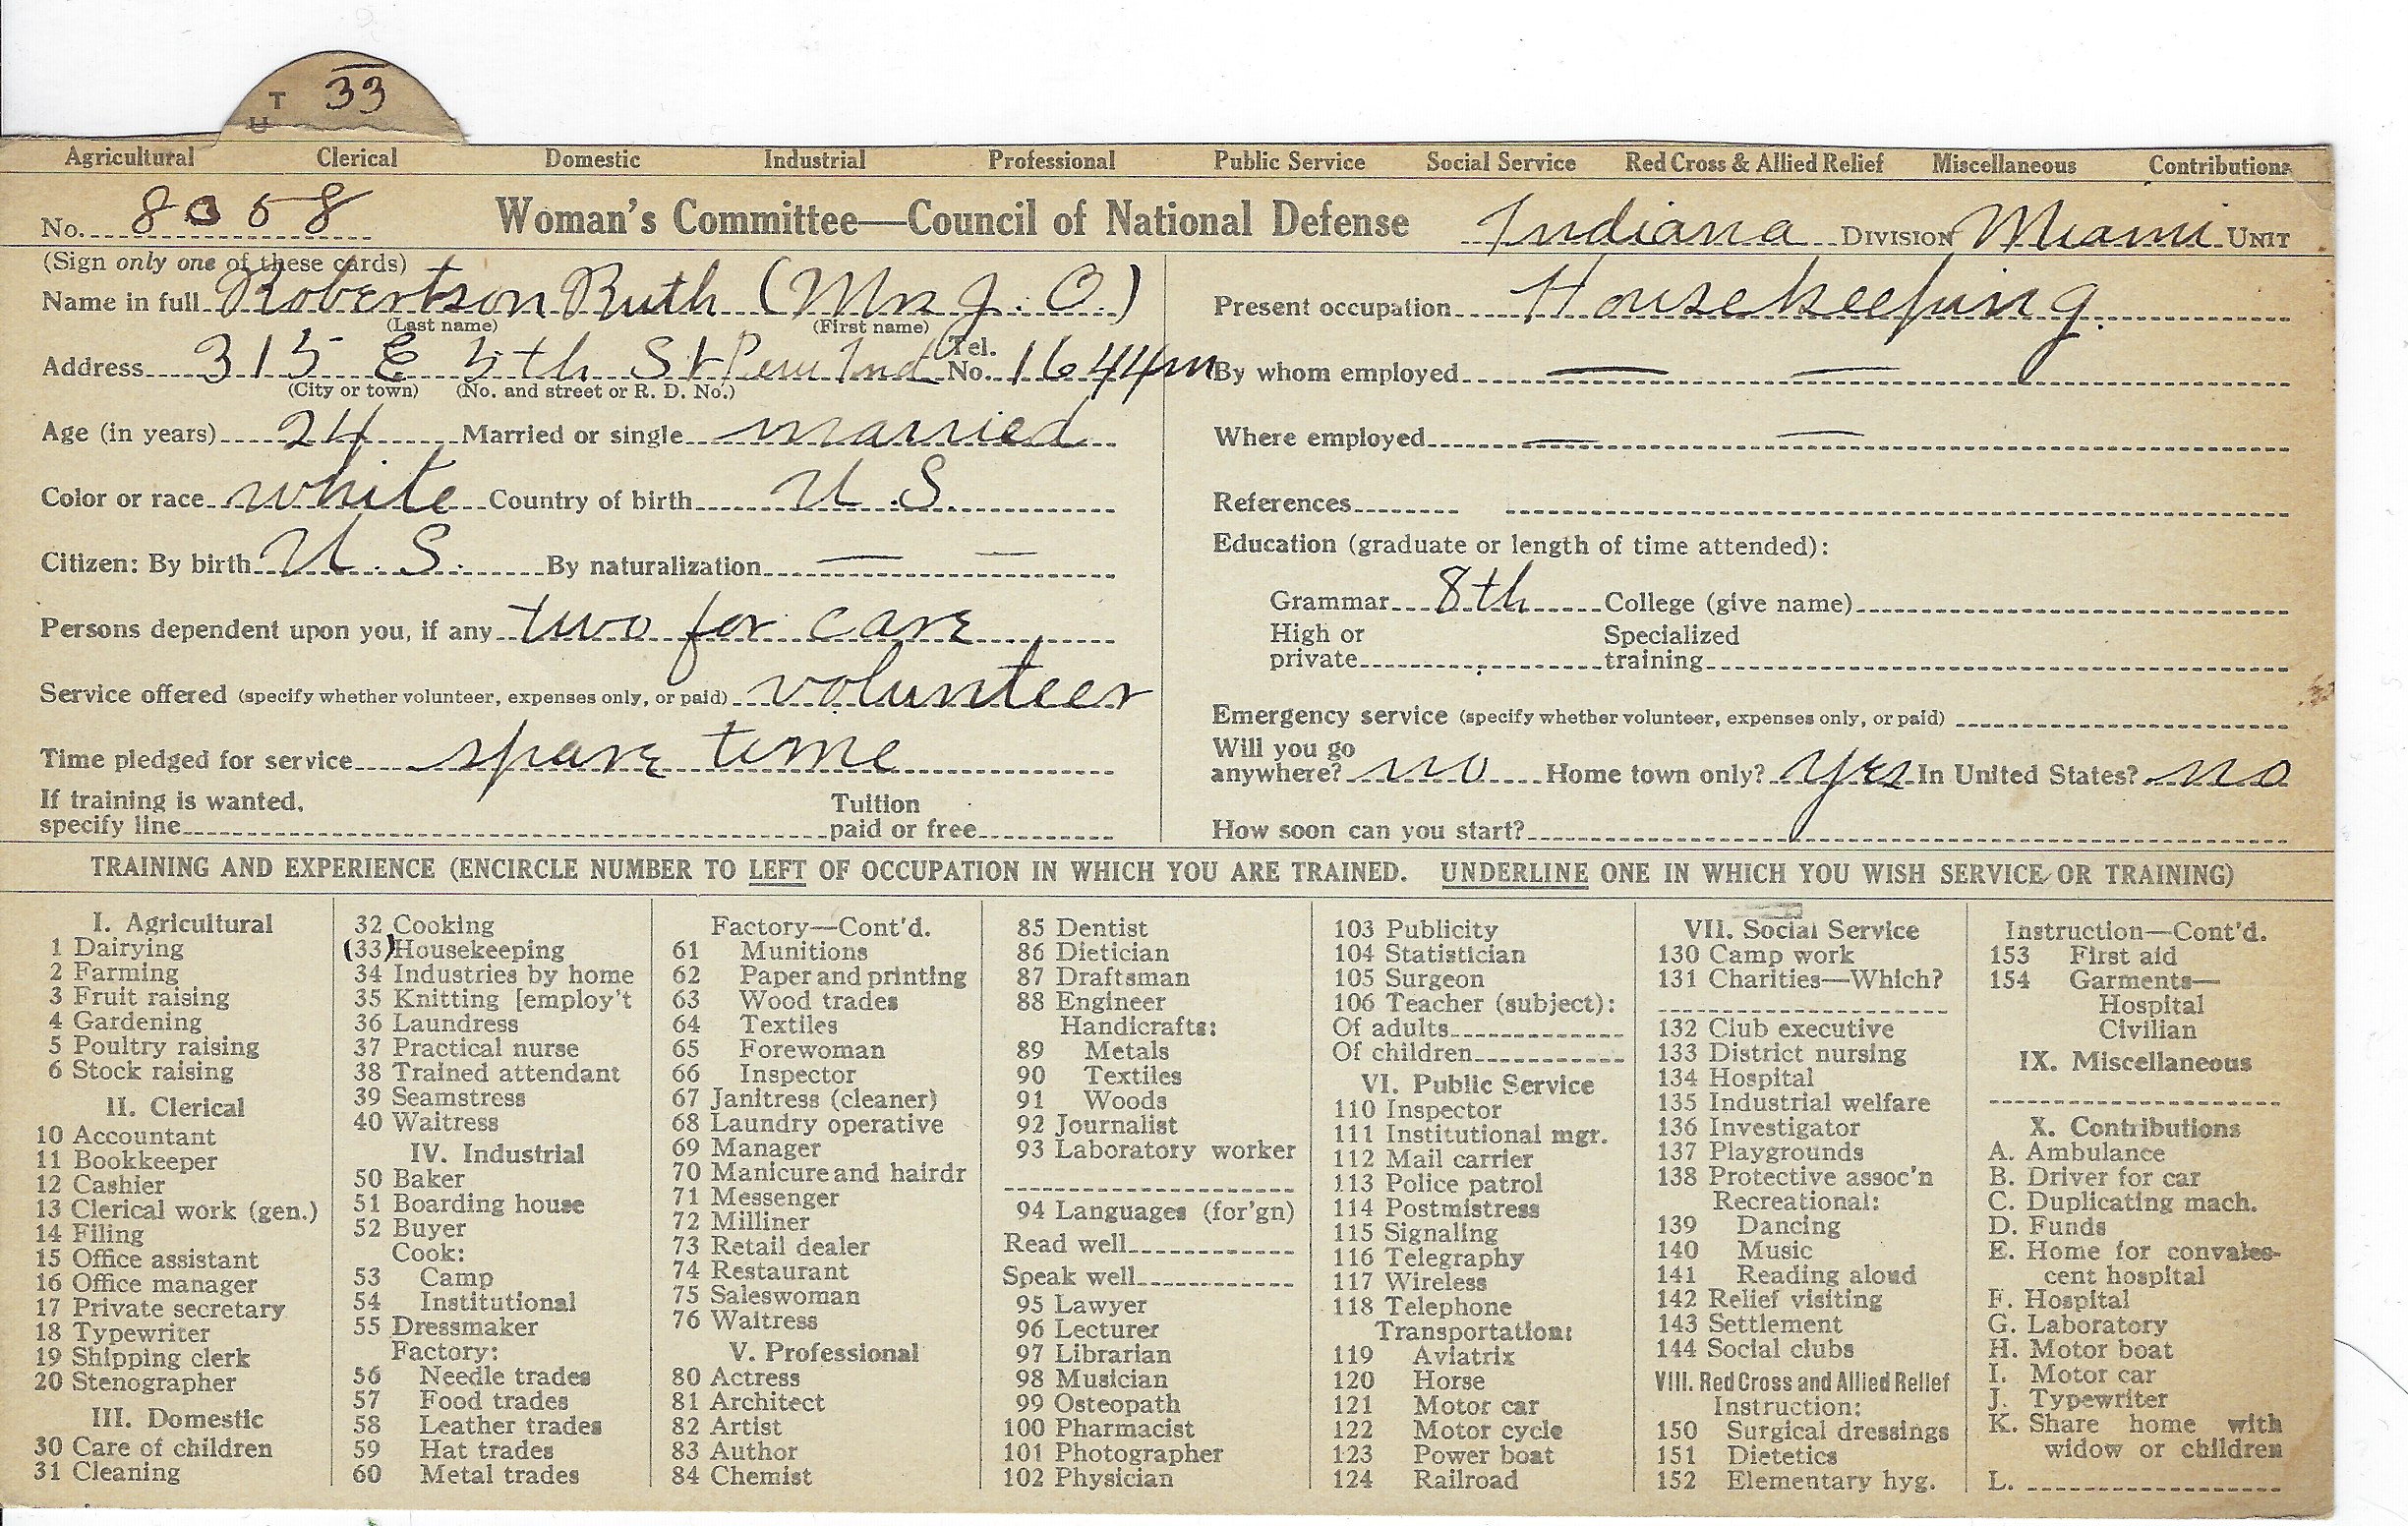 T 33
U
Agricultural Clerical Domestic Industrial Professional Public Service Social Service Red Cross & Allied Relief Miscellaneous Contributions
No. 8058 Woman's Committee—Council of National Defense Indiana DIVISION Miami UNIT
(Sign only one of these cards)
Name in full Robertson Ruth (Mrs J. O.)
(Last name) (First name)
Address 315 E 5th St Peru Ind Tel. No. 1644m
(City or town) (No. and street or R. D. No.)
Age (in years) 24 Married or single married
Color or race white Country of birth U.S.
Citizen: By birth U.S. By naturalization — —
Persons dependent upon you, if any two for care
Service offered (specify whether volunteer, expenses only, or paid) volunteer
Time pledged for service spare time
If training is wanted, specify line Tuition paid or free
Present occupation Housekeeping.
By whom employed — —
Where employed — —
References
Education (graduate or length of time attended):
Grammar 8th College (give name)
High or private Specialized training
Emergency service (specify whether volunteer, expenses only, or paid)
Will you go anywhere? no Home town only? yes In United States? no
How soon can you start?
TRAINING AND EXPERIENCE (ENCIRCLE NUMBER TO LEFT OF OCCUPATION IN WHICH YOU ARE TRAINED. UNDERLINE ONE IN WHICH YOU WISH SERVICE OR TRAINING)
I. Agricultural
1 Dairying
2 Farming
3 Fruit raising
4 Gardening
5 Poultry raising
6 Stock raising
II. Clerical
10 Accountant
11 Bookkeeper
12 Cashier
13 Clerical work (gen.)
14 Filing
15 Office assistant
16 Office manager
17 Private secretary
18 Typewriter
19 Shipping clerk
20 Stenographer
III. Domestic
30 Care of children
31 Cleaning
32 Cooking
(33) Housekeeping
34 Industries by home
35 Knitting [employ't
36 Laundress
37 Practical nurse
38 Trained attendant
39 Seamstress
40 Waitress
IV. Industrial
50 Baker
51 Boarding house
52 Buyer
Cook:
53 Camp
54 Institutional
55 Dressmaker
Factory:
56 Needle trades
57 Food trades
58 Leather trades
59 Hat trades
60 Metal trades
Factory—Cont'd.
61 Munitions
62 Paper and printing
63 Wood trades
64 Textiles
65 Forewoman
66 Inspector
67 Janitress (cleaner)
68 Laundry operative
69 Manager
70 Manicure and hairdr
71 Messenger
72 Milliner
73 Retail dealer
74 Restaurant
75 Saleswoman
76 Waitress
V. Professional
80 Actress
81 Architect
82 Artist
83 Author
84 Chemist
85 Dentist
86 Dietician
87 Draftsman
88 Engineer
Handicrafts:
89 Metals
90 Textiles
91 Woods
92 Journalist
93 Laboratory worker
94 Languages (for'gn)
Read well
Speak well
95 Lawyer
96 Lecturer
97 Librarian
98 Musician
99 Osteopath
100 Pharmacist
101 Photographer
102 Physician
103 Publicity
104 Statistician
105 Surgeon
106 Teacher (subject):
Of adults
Of children
VI. Public Service
110 Inspector
111 Institutional mgr.
112 Mail carrier
113 Police patrol
114 Postmistress
115 Signaling
116 Telegraphy
117 Wireless
118 Telephone
Transportation:
119 Aviatrix
120 Horse
121 Motor car
122 Motor cycle
123 Power boat
124 Railroad
VII. Social Service
130 Camp work
131 Charities—Which?
132 Club executive
133 District nursing
134 Hospital
135 Industrial welfare
136 Investigator
137 Playgrounds
138 Protective assoc'n
Recreational:
139 Dancing
140 Music
141 Reading aloud
142 Relief visiting
143 Settlement
144 Social clubs
VIII. Red Cross and Allied Relief
Instruction:
150 Surgical dressings
151 Dietetics
152 Elementary hyg.
Instruction—Cont'd.
153 First aid
154 Garments—
Hospital
Civilian
IX. Miscellaneous
X. Contributions
A. Ambulance
B. Driver for car
C. Duplicating mach.
D. Funds
E. Home for convales-
cent hospital
F. Hospital
G. Laboratory
H. Motor boat
I. Motor car
J. Typewriter
K. Share home with
widow or children
L.